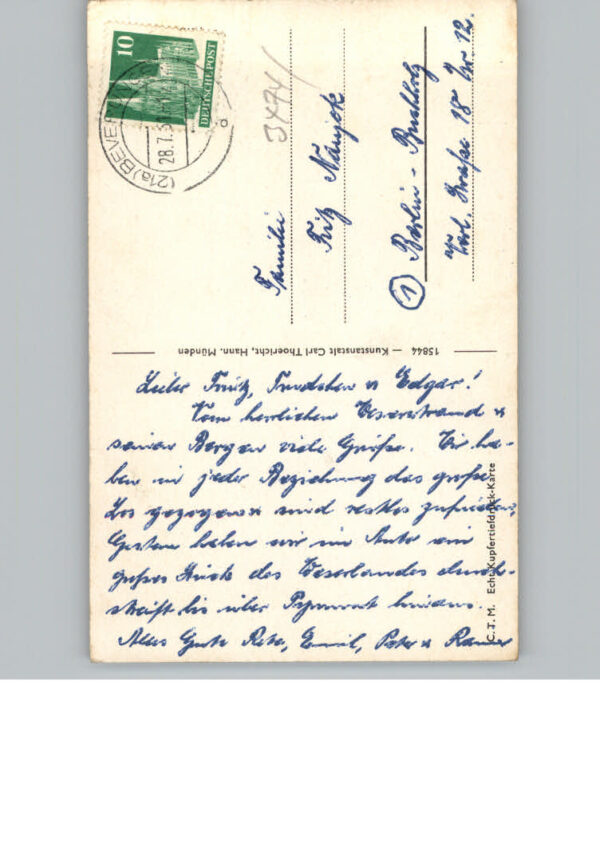 10
DEUTSCHE POST
(21a) BEVER
28.7.5
3474/
Familie
Fritz
(1) Berlin - Buchholz
Straße 18 Nr. 12.
15844 — Kunstanstalt Carl Thoericht, Hann. Münden
Lieber Fritz, Trudchen u Edgar!
Vom herlichen Weserstrand u
seinen Bergen viele Grüße. Wir ha-
ben in jeder Beziehung das große
Los gezogen sind restlos zufrieden,
Gestern haben wir im Auto ein
großes Stück des Weserlandes durch-
streift bis über Pyrmont hinaus.
Alles Gute Rita, Emil, Peter u Rainer
C.T.M. Echt Kupfertiefdruck-Karte